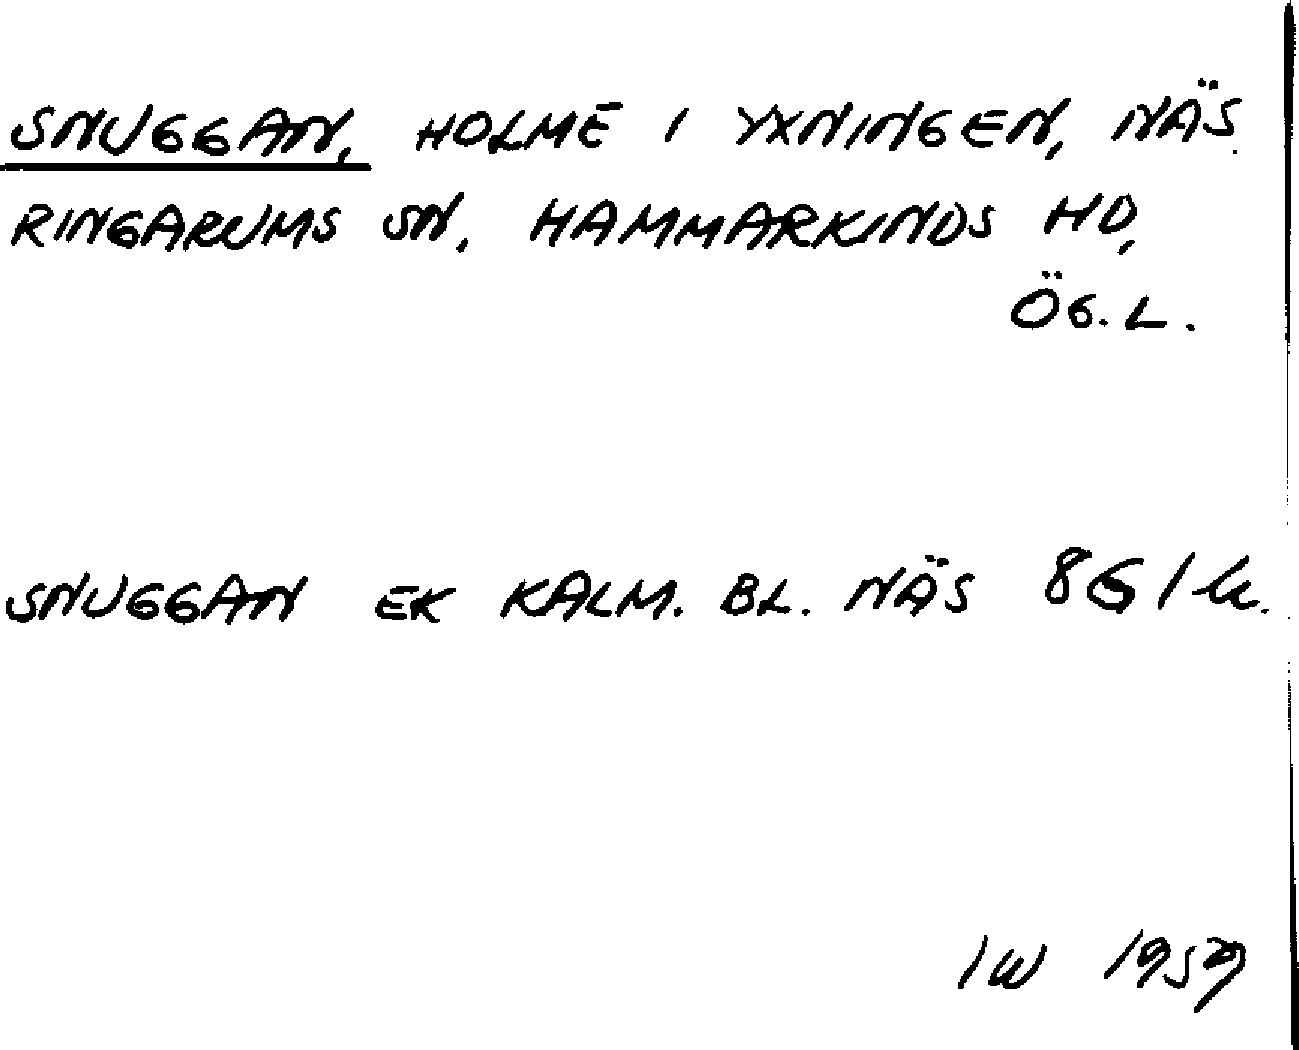 SNUGGAN, HOLME I YXNINGEN, NÄS.
RINGARUMS SN, HAMMARKINDS HD,
ÖG. L.
SNUGGAN EK KALM. BL. NÄS
IW 1959